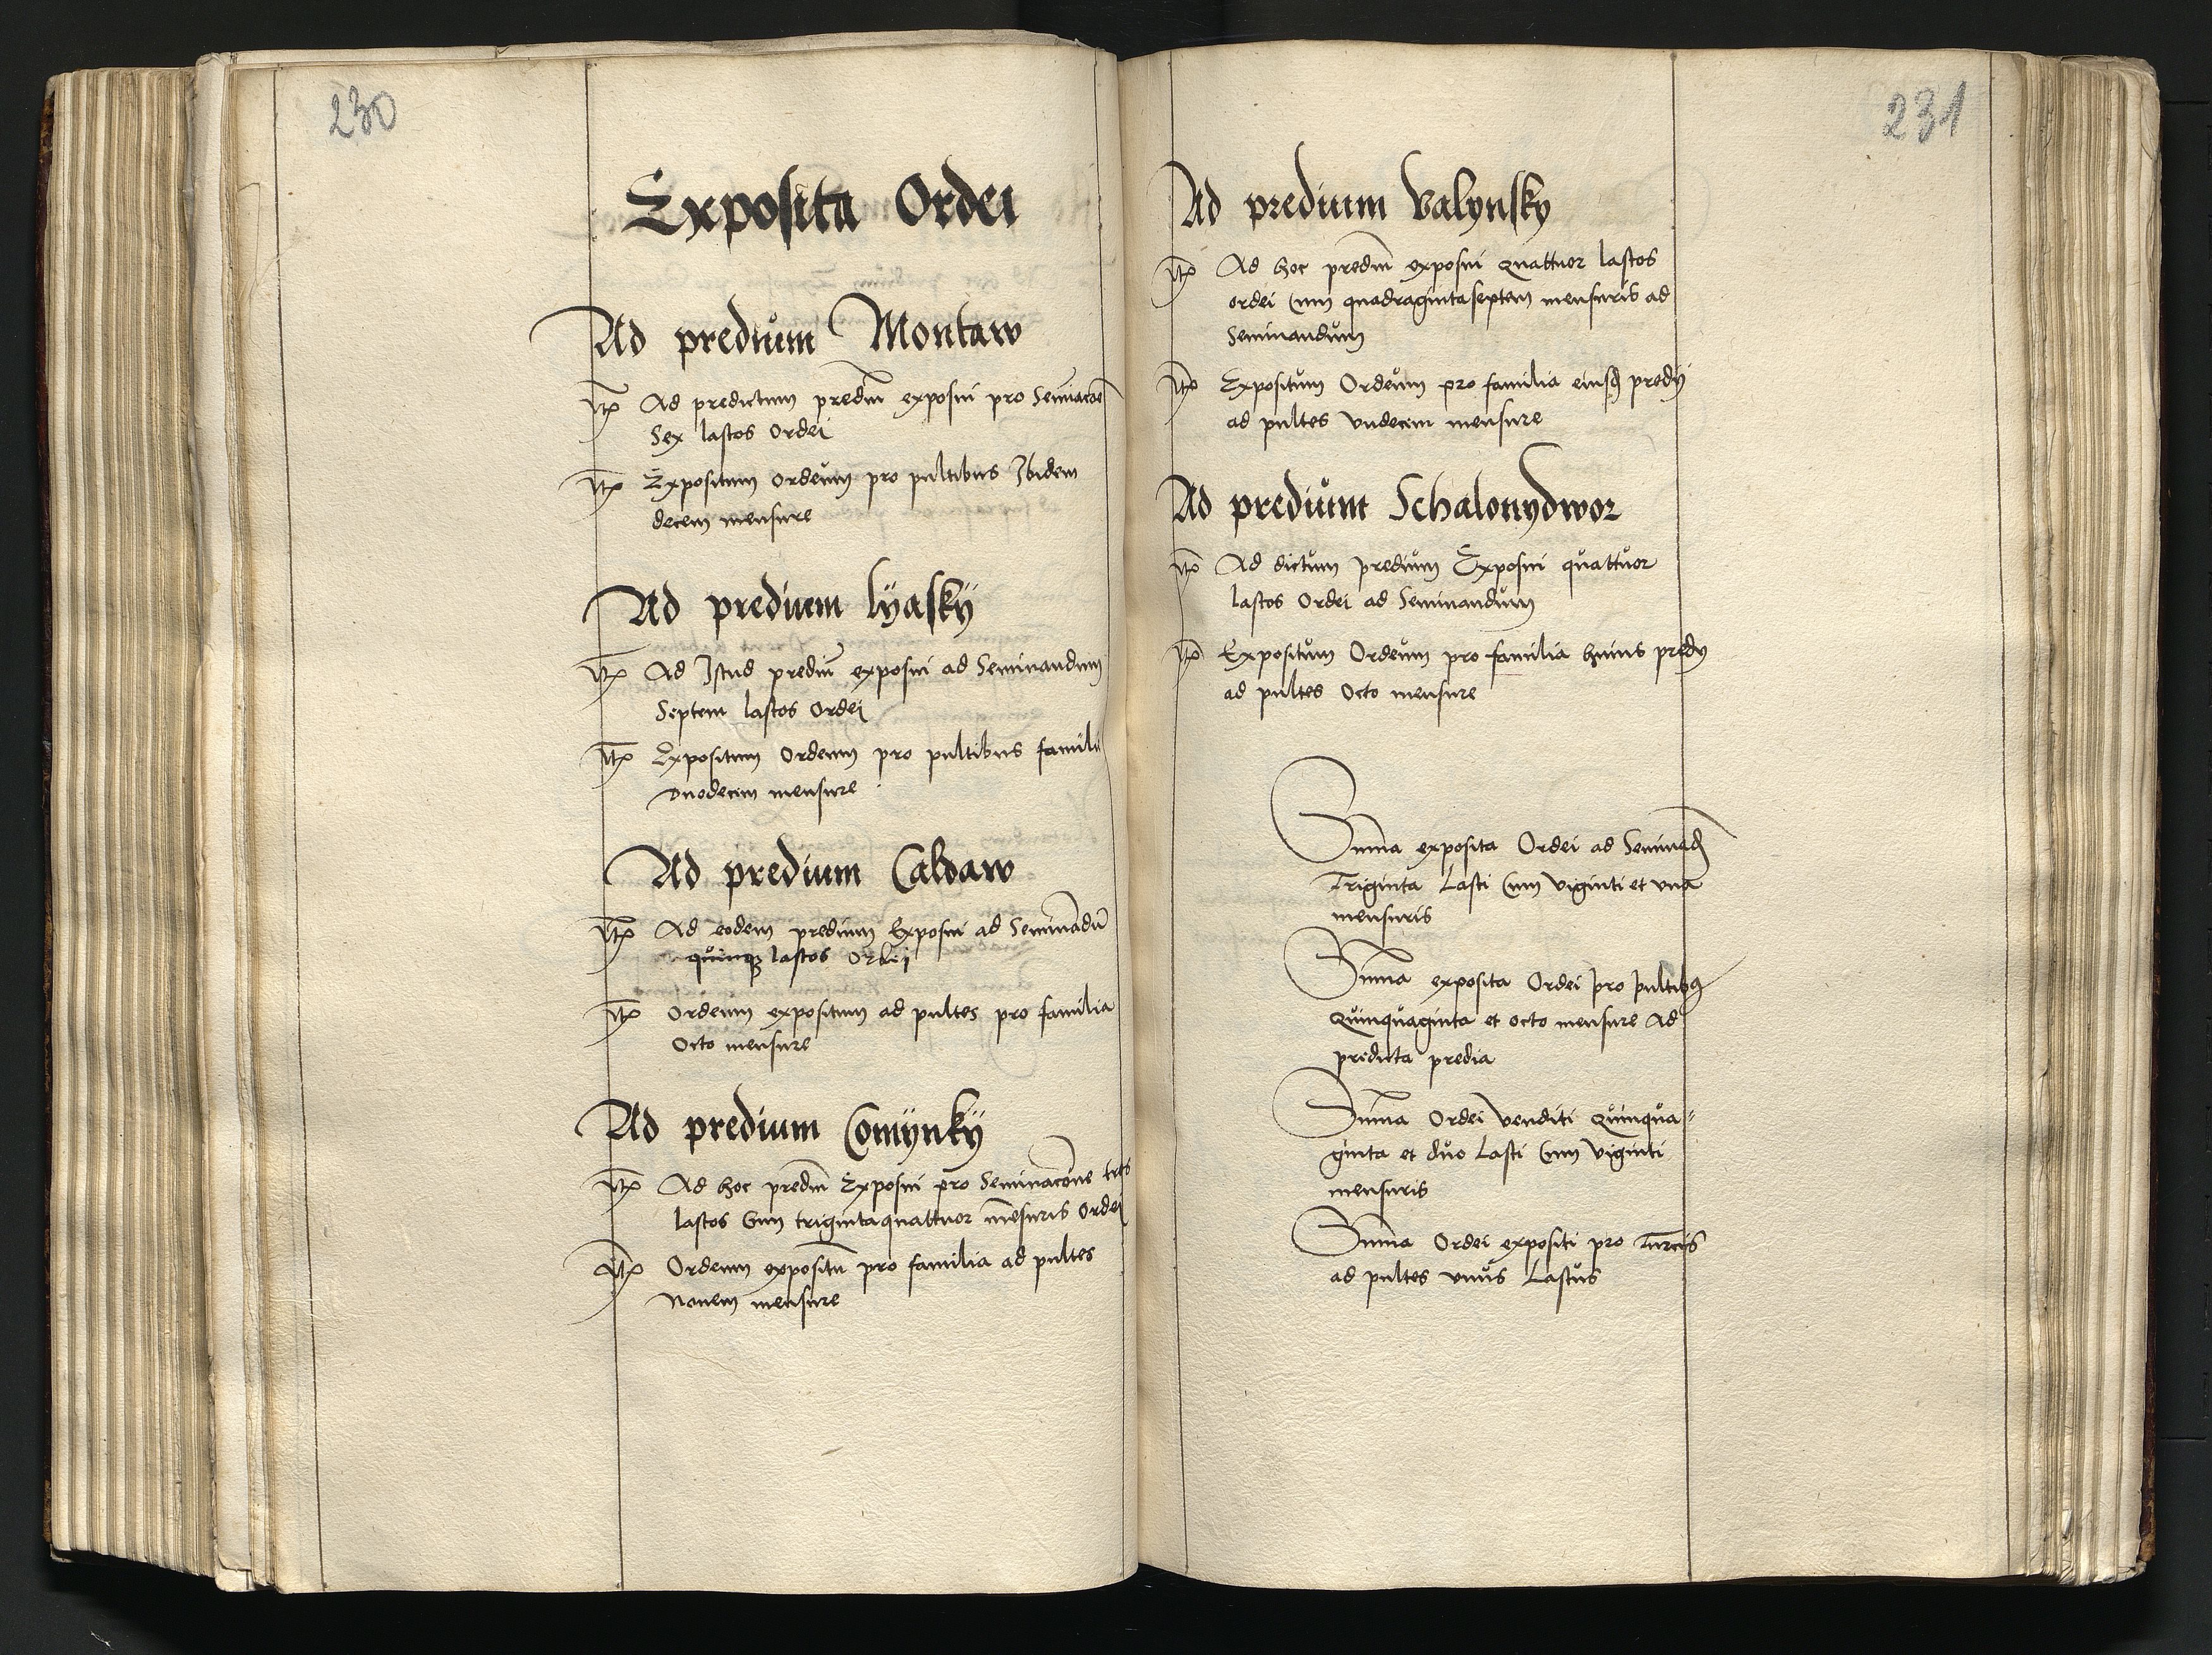 230
Exposita Ordei
Ad predium Montaw
Itē Ad predictum prediū exposui pro Semīacōe
Sex lastos Ordei
Itē Expositum ordeum pro pultibus Ibidem
decem mensure
Ad predium lÿaskÿ
Itē Ad Istud prediū exposui ad Seminandum
Septem lastos Ordei
Itē Expositum Ordeum pro pultibus famili
Duodecim mensure
Ad predium Caldaw
Itē Ad eodem predium Exposui ad Semināndū
quinqꝫ lastos Ordei
Itē Ordeum expositum ad pultes pro familia
Octo mensure
Ad predium Comÿnkÿ
Itē Ad hoc prediū Exposui pro Seminacōne tres
lastos Cum trigintaquattuor mēsuris Ordei
Itē Ordeum expositū pro familia ad pultes
Nouem mensure
231
Ad predium Valynsky
Itē Ad hoc prediū exposui Quattuor lastos
ordei Cum quadragintaseptem mensuris ad
Seminandum
Itē Expositum Ordeum pro familia eiusꝺ predij
ad pultes Vndecim mensure
Ad predium Schalonydwor
Itē Ad dictum predium Exposui quattuor
lastos Ordei ad Seminandum
Itē Expositum Ordeum pro familia huius predij
ad pultes Octo mensure
Sum̄a exposita Ordei ad Seminādꝫ
Triginta Lasti Cum viginti et vna
mensuris
Sum̄a exposita Ordei pro pultibꝫ
Quinquaginta et octo mensure Ad
predicta predia
Sum̄a Ordei venditi Quinqua⸗
ginta et duo Lasti Cum Viginti
mensuris
Sum̄a Ordei expositi pro Turcis
ad pultes vnus Lastus